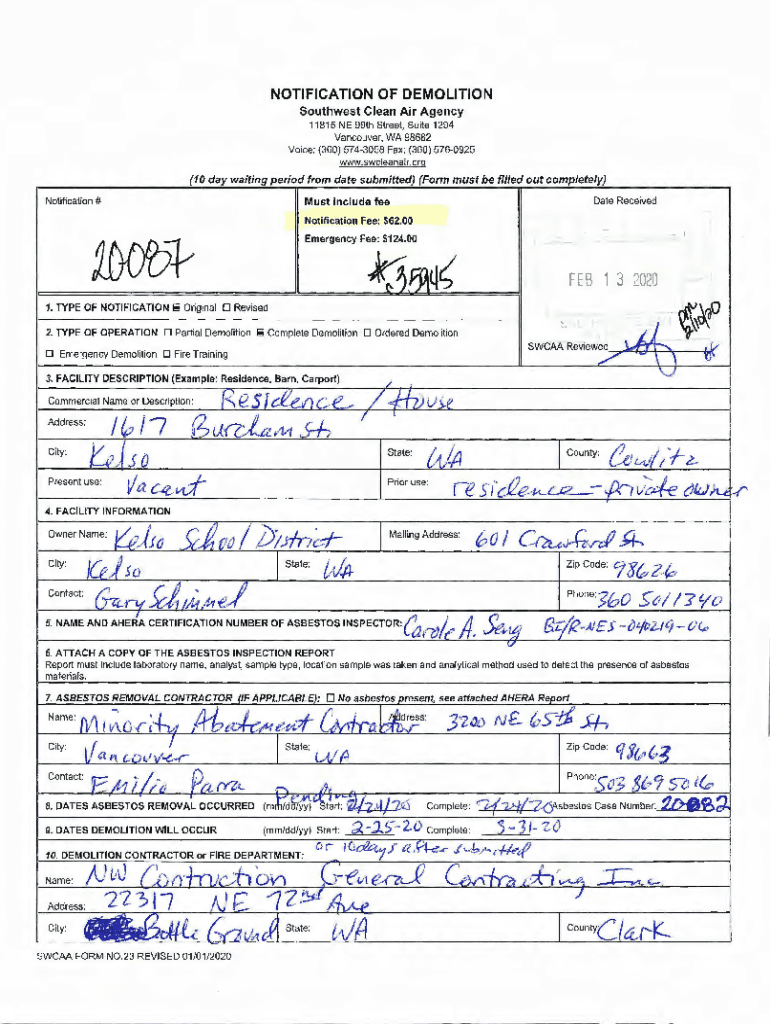 NOTIFICATION OF DEMOLITION
Southwest Clean Air Agency
11815 NE 99th Street, Suite 1294
Vancouver, WA 98682
Voice: (360) 574-3058 Fax: (360) 576-0925
www.swcleanair.org
(10 day waiting period from date submitted) (Form must be filled out completely)
Notification # Must include fee Date Received
Notification Fee: $62.00
Emergency Fee: $124.00
20087 #35945
FEB 13 2020
1. TYPE OF NOTIFICATION Original ☐ Revised
2. TYPE OF OPERATION ☐ Partial Demolition Complete Demolition ☐ Ordered Demolition
☐ Emergency Demolition ☐ Fire Training
SWCAA Reviewed
3. FACILITY DESCRIPTION (Example: Residence, Barn, Carport)
Commercial Name or Description: Residence / House
Address: 1617 Burcham St.
City: Kelso State: WA County: Cowlitz
Present use: Vacant Prior use: residence - private owner
4. FACILITY INFORMATION
Owner Name: Kelso School District Mailing Address: 601 Crawford St.
City: Kelso State: WA Zip Code: 98626
Contact: Gary Schimmel Phone: 360 501 1340
5. NAME AND AHERA CERTIFICATION NUMBER OF ASBESTOS INSPECTOR: Carole A. Seng BI/R-NES-040219-06
6. ATTACH A COPY OF THE ASBESTOS INSPECTION REPORT
Report must include laboratory name, analyst, sample type, location sample was taken and analytical method used to detect the presence of asbestos
materials.
7. ASBESTOS REMOVAL CONTRACTOR (IF APPLICABLE): ☐ No asbestos present, see attached AHERA Report
Name: Minority Abatement Contractor Address: 3200 NE 65th St.
City: Vancouver State: WA Zip Code: 98663
Contact: Emilio Parra Phone: 503 869 5016
Pending
8. DATES ASBESTOS REMOVAL OCCURRED (mm/dd/yy) Start: 2/24/20 Complete: 2/24/20 Asbestos Case Number: 20082
9. DATES DEMOLITION WILL OCCUR (mm/dd/yy) Start: 2-25-20 Complete: 3-31-20
or 10 days after submitted
10. DEMOLITION CONTRACTOR or FIRE DEPARTMENT:
Name: NW Contruction General Contracting Inc
Address: 22317 NE 72nd Ave
City: Battle Ground State: WA County: Clark
SWCAA FORM NO.23 REVISED 01/01/2020